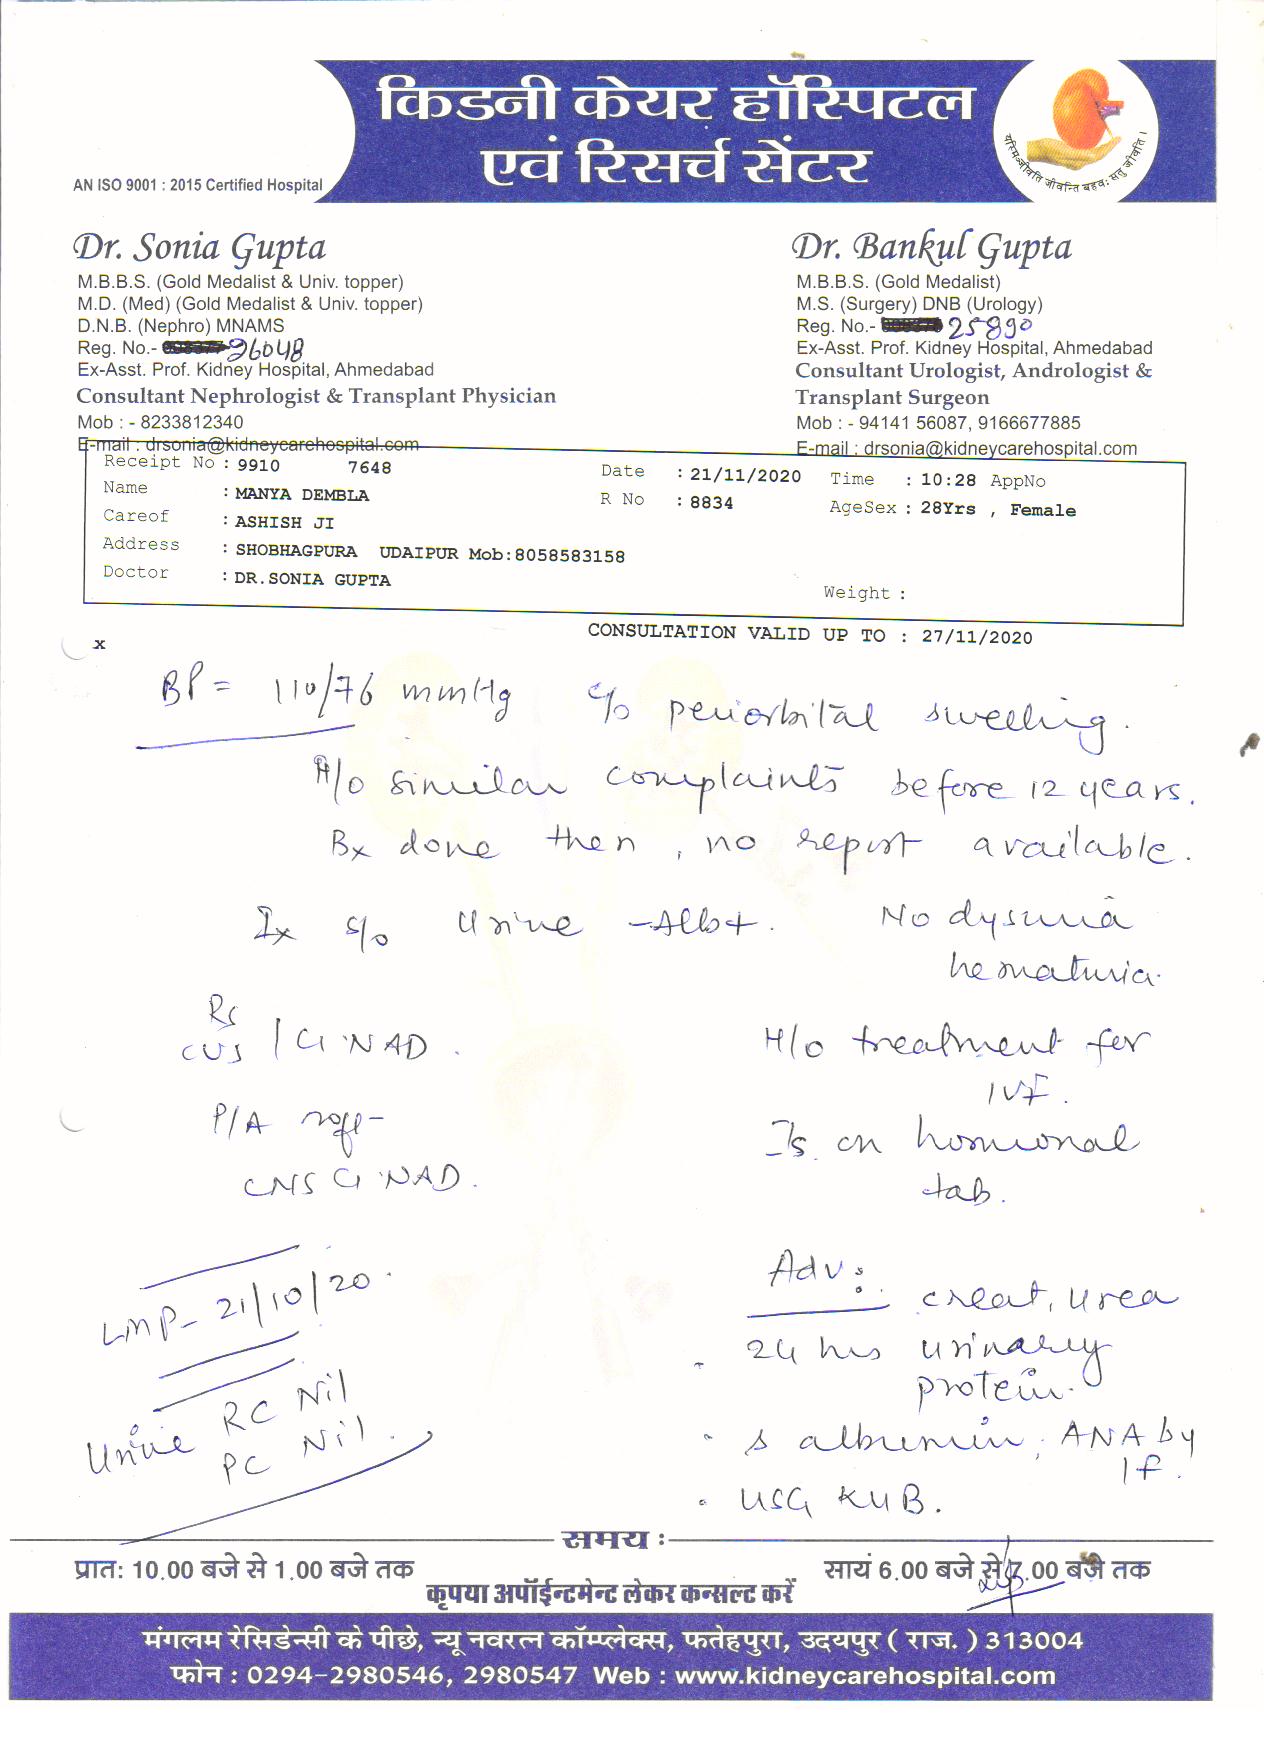 किडनी केयर हॉस्पिटल
एवं रिसर्च सेंटर
AN ISO 9001 : 2015 Certified Hospital
यस्मिन्जीवति जीवन्ति बहवः सतु जीवति ।
Dr. Sonia Gupta
M.B.B.S. (Gold Medalist & Univ. topper)
M.D. (Med) (Gold Medalist & Univ. topper)
D.N.B. (Nephro) MNAMS
Reg. No.- 26048
Ex-Asst. Prof. Kidney Hospital, Ahmedabad
Consultant Nephrologist & Transplant Physician
Mob : - 8233812340
E-mail : drsonia@kidneycarehospital.com
Dr. Bankul Gupta
M.B.B.S. (Gold Medalist)
M.S. (Surgery) DNB (Urology)
Reg. No.- 25890
Ex-Asst. Prof. Kidney Hospital, Ahmedabad
Consultant Urologist, Andrologist &
Transplant Surgeon
Mob : - 94141 56087, 9166677885
E-mail : drsonia@kidneycarehospital.com
Receipt No : 9910 7648 Date : 21/11/2020 Time : 10:28 AppNo
Name : MANYA DEMBLA R No : 8834 AgeSex : 28Yrs , Female
Careof : ASHISH JI
Address : SHOBHAGPURA UDAIPUR Mob:8058583158
Doctor : DR.SONIA GUPTA Weight :
CONSULTATION VALID UP TO : 27/11/2020
x
BP = 110/76 mmHg c/o periorbital swelling.
H/o similar complaints before 12 years.
Bx done then, no report available.
Ix s/o Urine -Alb+. No dysuria
hematuria.
RS
CVS / NAD.
H/o treatment for
IVF.
P/A
Is on hormonal
tab.
CNS NAD.
LMP- 21/10/20.
Urine RC Nil
PC Nil.
Adv: creat, urea
- 24 hrs urinary
protein.
. s albumin, ANA by
IF.
. USG KUB.
समय :
प्रात: 10.00 बजे से 1.00 बजे तक सायं 6.00 बजे से 7.00 बजे तक
कृपया अपॉईन्टमेन्ट लेकर कन्सल्ट करें
मंगलम रेसिडेन्सी के पीछे, न्यू नवरत्न कॉम्प्लेक्स, फतेहपुरा, उदयपुर ( राज. ) 313004
फोन : 0294-2980546, 2980547 Web : www.kidneycarehospital.com